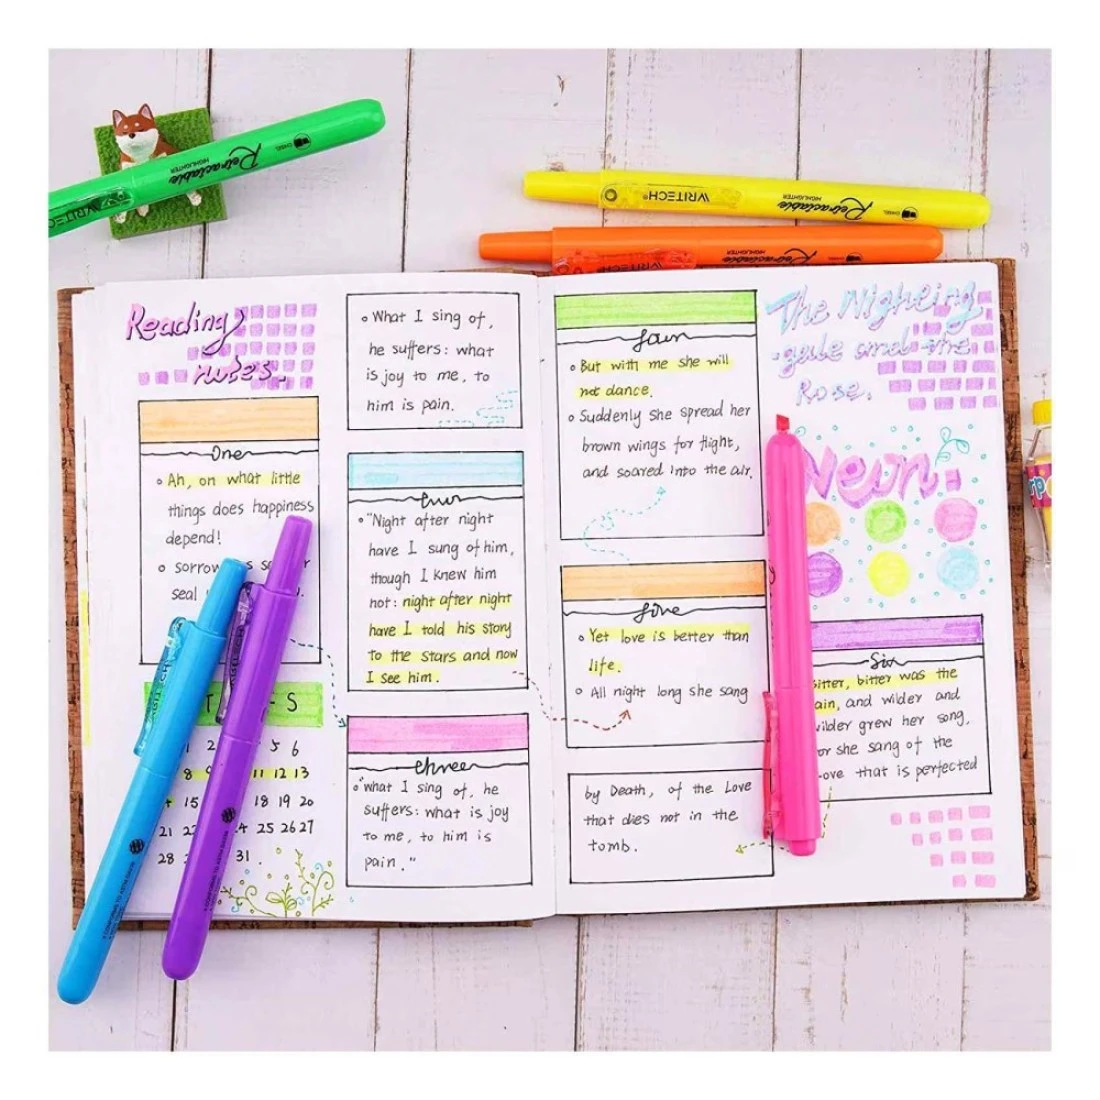 Retractable
HIGHLIGHTER
CHISEL
WRITECH
WRITECH
Retractable
HIGHLIGHTER
CHISEL
Retractable
HIGHLIGHTER
Reading
notes.
One
Ah, on what little
things does happiness
depend!
sorrow
seal
T - S
2 5 6
8 11 12 13
15 18 19 20
21 22 24 25 26 27
28 31.
What I sing of,
he suffers: what
is joy to me, to
him is pain.
"Night after night
have I sung of him,
though I knew him
not: night after night
have I told his story
to the stars and now
I see him.
three
"what I sing of, he
suffers: what is joy
to me, to him is
pain."
But with me she will
not dance.
Suddenly she spread her
brown wings for flight,
and soared into the air.
five
Yet love is better than
life.
All night long she sang
by Death, of the Love
that dies not in the
tomb.
The Nighting
-gale and the
Rose.
Neon.
Six
bitter, bitter was the
pain, and wilder and
wilder grew her song,
for she sang of the
Love that is perfected